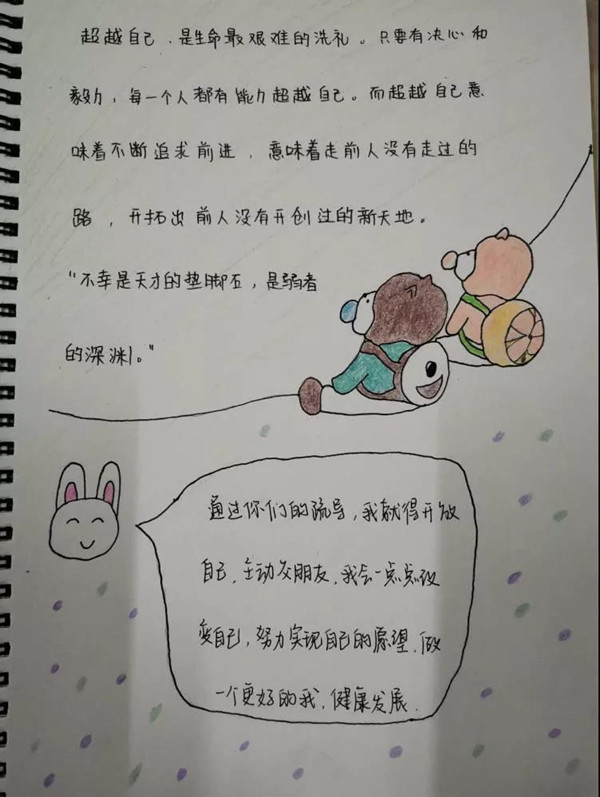 超越自己，是生命最艰难的洗礼。只要有决心和
毅力，每一个人都有能力超越自己。而超越自己意
味着不断追求前进，意味着走前人没有走过的
路，开拓出前人没有开创过的新天地。
"不幸是天才的垫脚石，是弱者
的深渊。"
通过你们的疏导，我就得开放
自己，主动交朋友，我会一点点改
变自己，努力实现自己的愿望，做
一个更好的我，健康发展．